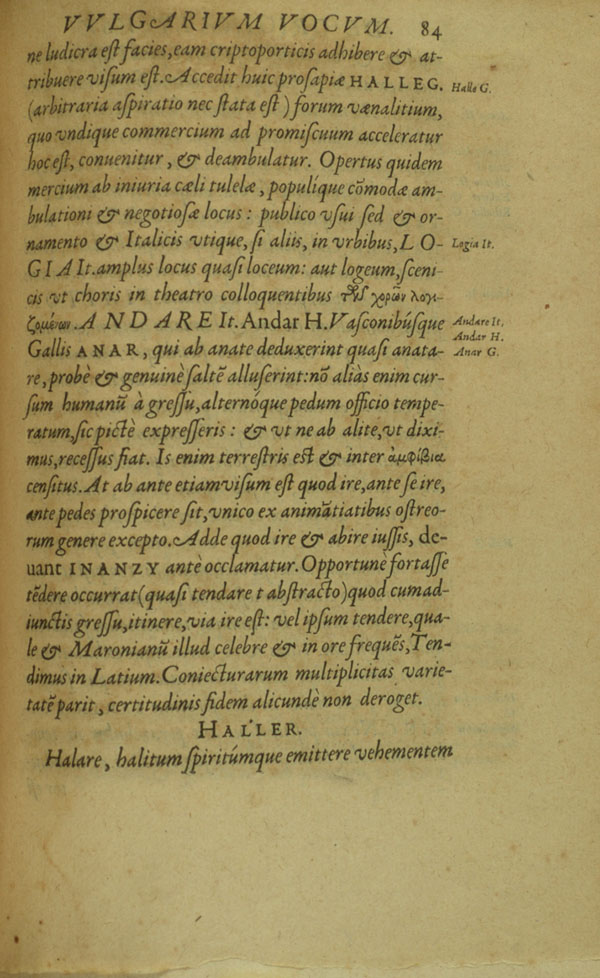 VVLGARIVM VOCVM. 84
ne ludicra eſt facies, eam criptoporticis adhibere & at-
tribuere viſum eſt. Accedit huic proſapiæ HALLEG.
Halle G.
(arbitraria aſpiratio nec ſtata eſt) forum vænalitium,
quo vndique commercium ad promiſcuum acceleratur
hoc eſt, conuenitur, & deambulatur. Opertus quidem
mercium ab iniuria cæli tutelæ, populíque cõmodæ am-
bulationi & negotioſæ locus: publico vſui ſed & or-
namento & Italicis vtique, ſi aliis, in vrbibus, LO-
Logia It.
GIA It. amplus locus quaſi loceum: aut logeum, ſceni-
cis vt choris in theatro colloquentibus τῶν χορῶν λογι-
ζομένων. ANDARE It. Andar H. Vaſconibúſque
Andare It.
Andar H.
Gallis ANAR, qui ab anate deduxerint quaſi anata-
Anar G.
re, probè & genuinè ſaltẽ alluſerint: nõ aliàs enim cur-
ſum humanũ à greſſu, alternóque pedum officio tempe-
ratum, ſic pictè expreſſeris: & vt ne ab alite, vt dixi-
mus, receſſus fiat. Is enim terreſtris eſt & inter ἀμφίβια
cenſitus. At ab ante etiam viſum eſt quod ire, ante ſe ire,
ante pedes proſpicere ſit, vnico ex animãtiatibus oſtreo-
rum genere excepto. Adde quod ire & abire iuſſis, de-
uant INANZY antè occlamatur. Opportunè fortaſſe
tẽdere occurrat (quaſi tendare t abſtracto) quod cumad-
iunctis greſſu, itinere, via ire eſt: vel ipſum tendere, qua-
le & Maronianũ illud celebre & in ore frequẽs, Ten-
dimus in Latium. Coniecturarum multiplicitas varie-
tatẽ parit, certitudinis fidem alicundè non deroget.
HALLER.
Halare, halitum ſpiritúmque emittere vehementem